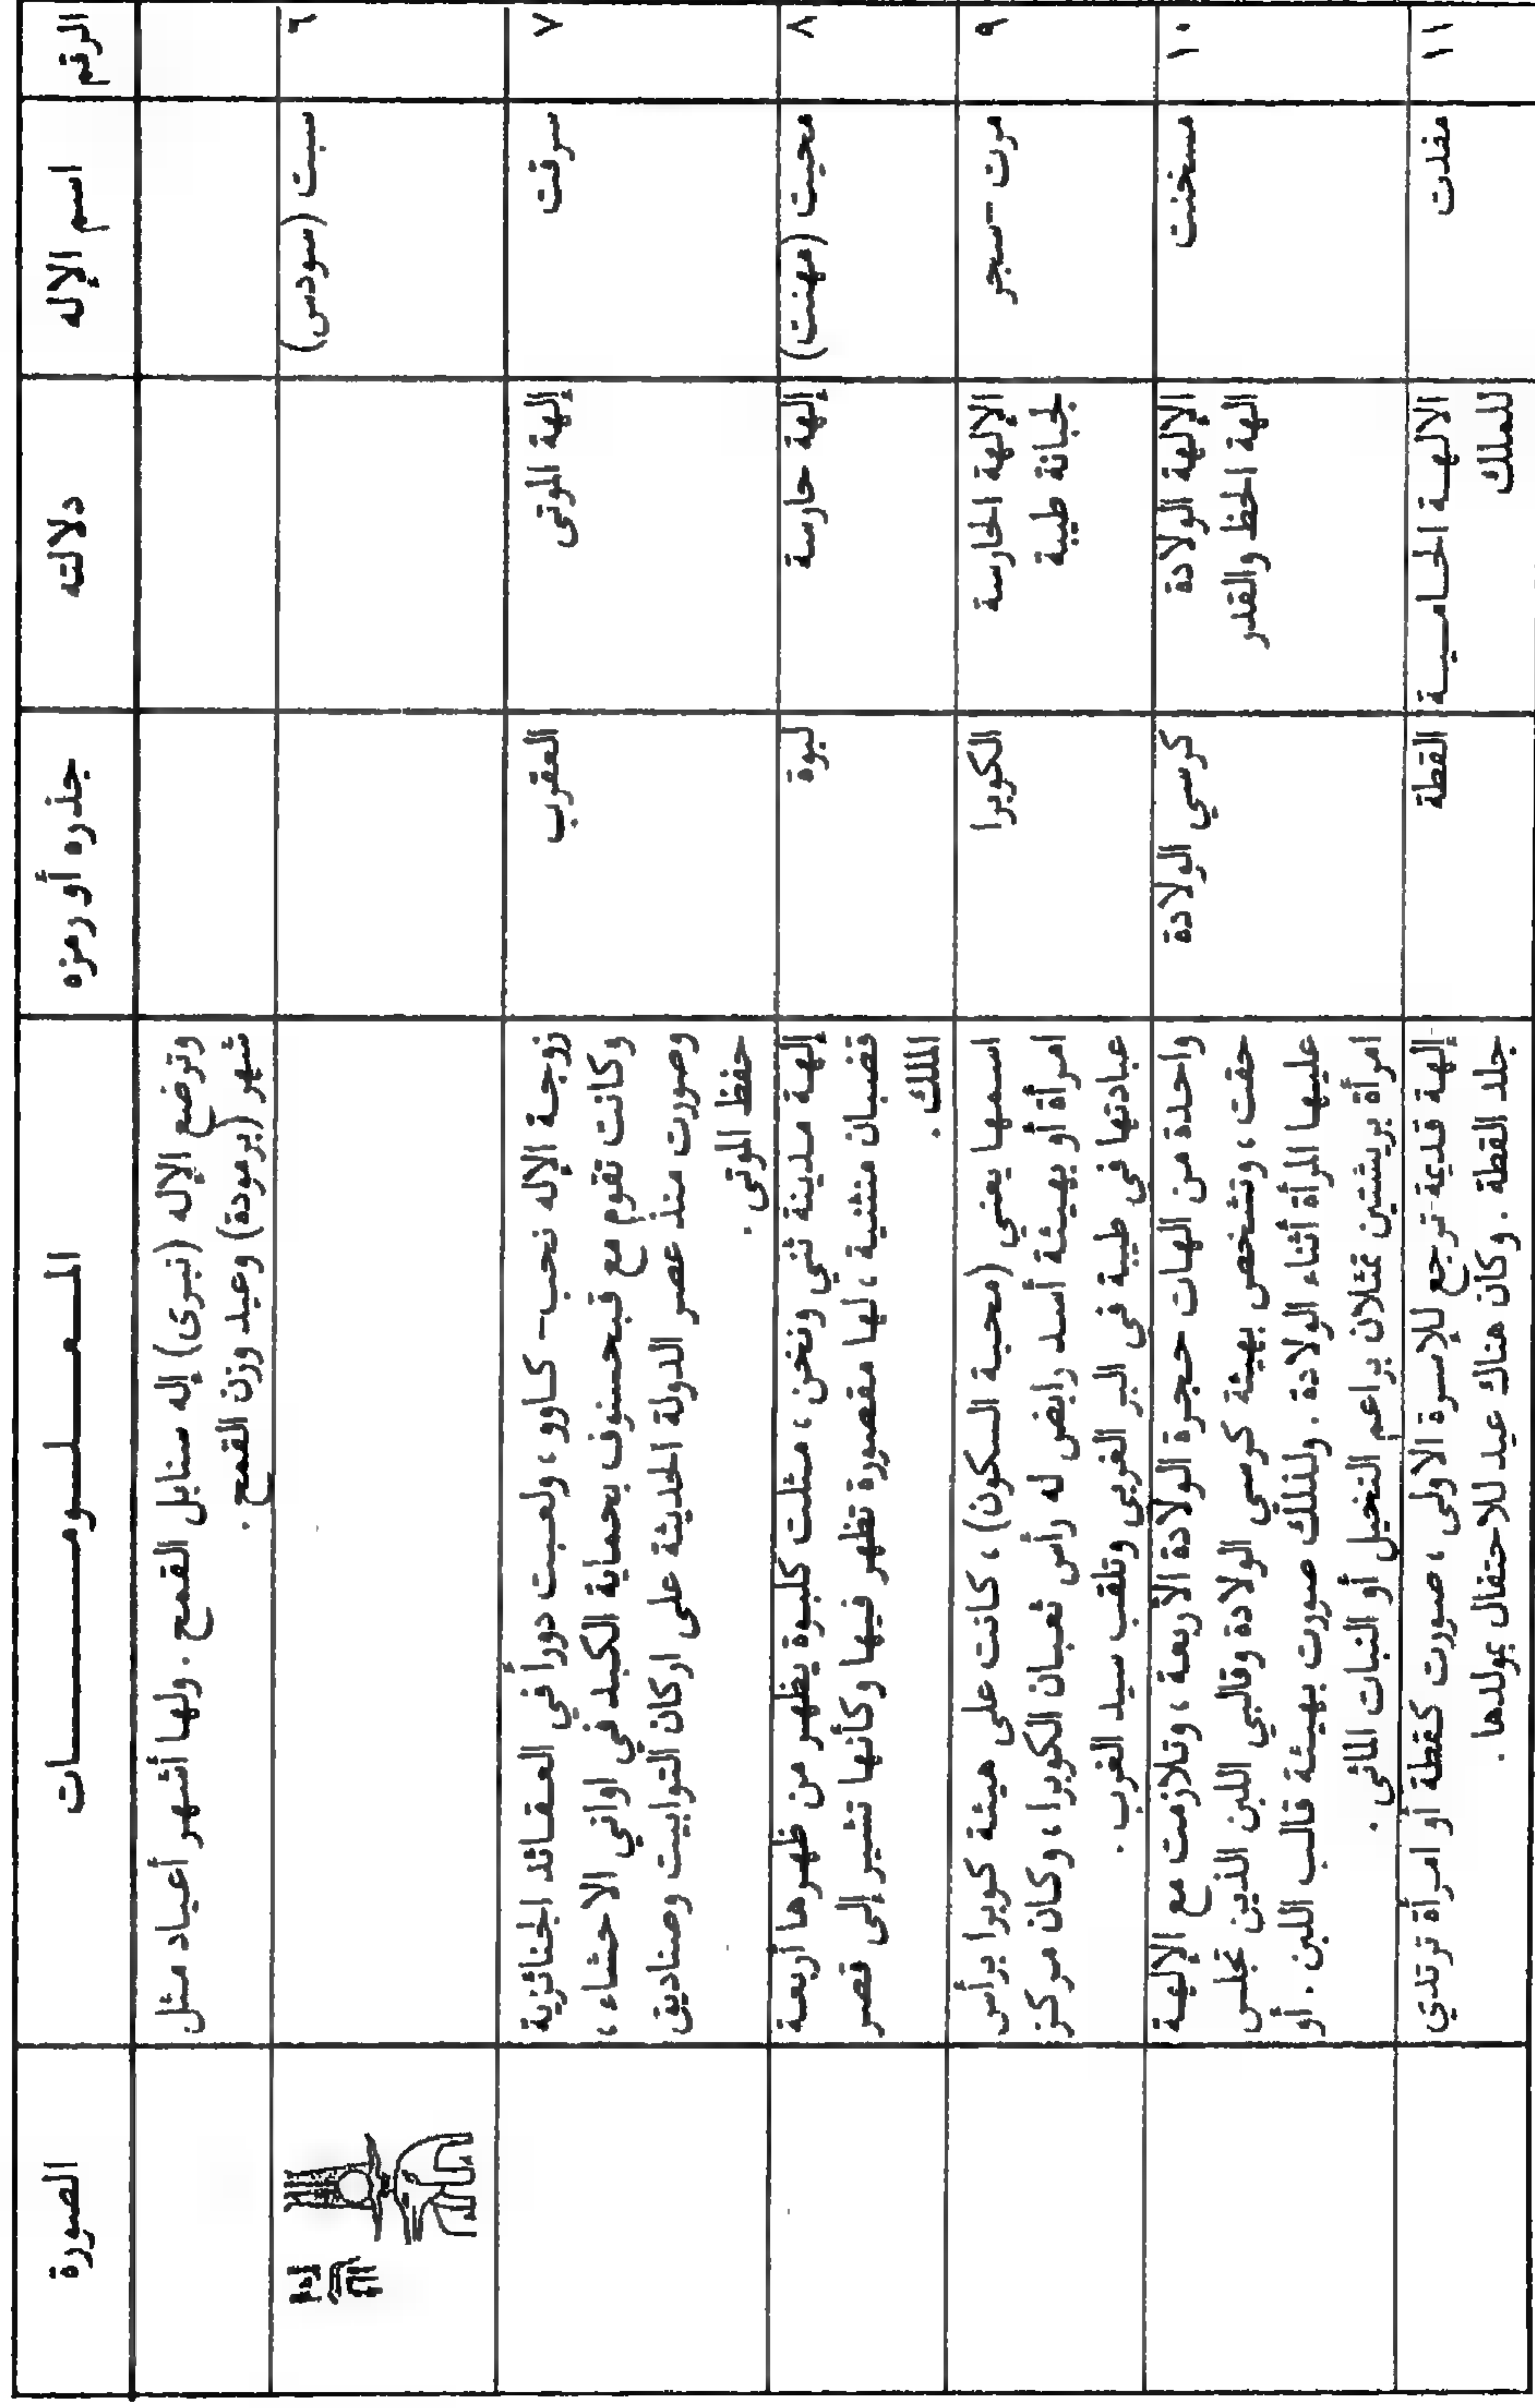 الرقم	اسم الإله	دلالته	جذره أو رمزه	المعلومات	الصورة
وترضع الإله (نبرى) إله سنابل القمح. ولها أشهر أعياد مثل
شهر (برمودة) وعيد وزن القمح.
٦	سبت (سودس)
٧	سرقت	إلهة الموتى	العقرب	زوجة الإله نحب- كاوو، ولعبت دوراً في العقائد الجنائزية
وكانت تقوم مع قبحسنوف بحماية الكبد في اواني الاحشاء،
وصورت منذ عصر الدولة الحديثة على اركان التوابيت وصناديق
حفظ الموتى.
٨	محيت (مهنت)	إلهة حارسة	لبوة	إلهة مدينة ثني ونخن، مثلت كلبوة يظهر من ظهرها أربعة
قضبان منثنية، لها مقصورة تظهر فيها وكأنها تشير إلى قصر
الملك.
٩	مرت-سجر	الإلهة الحارسة	الكوبرا	اسمها يعني (محبة السكون)، كانت على هيئة كوبرا برأس
لجبانة طيبة	امرأة أو بهيئة أسد رابض له رأس ثعبان الكوبرا، وكان مركز
عبادتها في طيبة في البر الغربي وتلقب سيد الغرب.
١٠	مسخنت	الإلهة الولادة	كرسي الولادة	واحدة من الهات حجرة الولادة الأربعة، وتلازمت مع الإلهة
الهة الحظ والقدر	حقت، وتشخص بهيئة كرسي الولادة وقالبي اللبن الذين تجلس
عليها المرأة أثناء الولادة. ولذلك صورت بهيئة قالب اللبن. أو
امرأة بريشتين تمثلان براعم النخيل أو النبات المائي.
١١	مفدت	الالهة الحامية	القطة	إلهة قديمة ترجع للإسرة الاولى، صورت كقطة أو امرأة ترتدي
للملك	جلد القطة. وكان هناك عيد للاحتفال بمولدها.